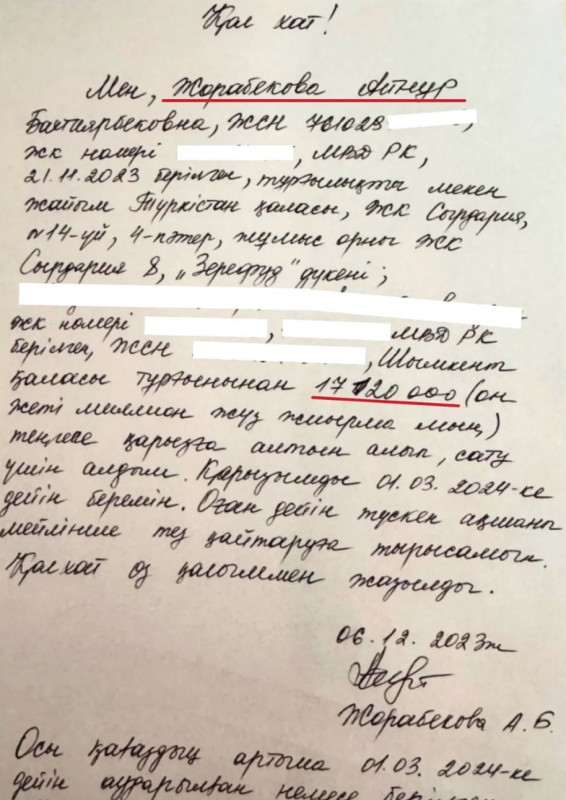 Қол хат!
Мен, Жорабекова Айнур
Бахтиярбековна, ЖСН 761023
жк номері , МВД РК,
21.11.2023 берілген, тұрғылықты мекен
жайым Түркістан қаласы, ЖК Сырдария,
№14-үй, 4-пәтер, жұмыс орны ЖК
Сырдария 8, „Зерефуд" дүкені;
жк номері , МВД РК
берілген, ЖСН , Шымкент
қаласы тұрғынынан 17 120 000 (он
жеті миллион жүз жиырма мың)
теңгеге қарызға алтын алып, сату
үшін алдым. Қарызымды 01.03.2024-ке
дейін беремін. Оған дейін түскен ақшаны
мейлінше тез қайтаруға тырысамын.
Қол хат өз қолыммен жазылды.
06.12.2023ж
Жорабекова А.Б.
Осы қағаздың артына 01.03.2024-ке
дейін аударылған немесе